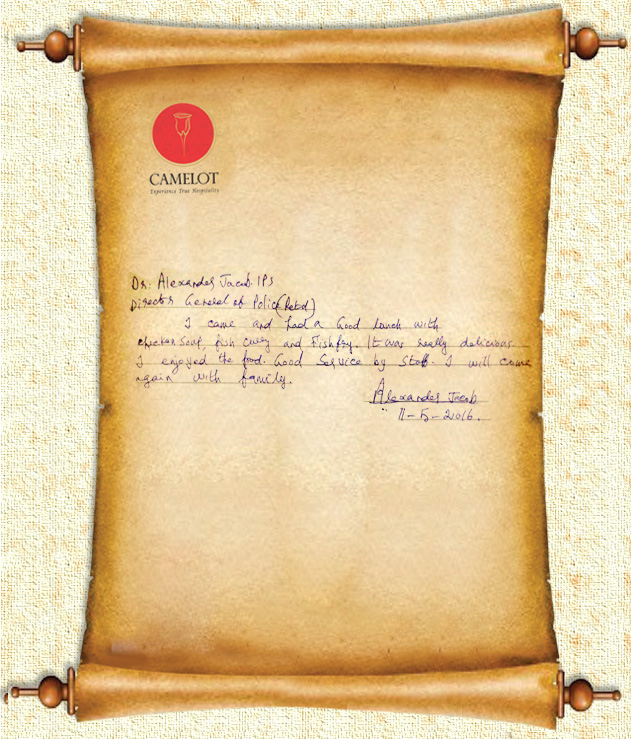 CAMELOT
Experience True Hospitality
Dr. Alexander Jacob IPS
Director General of Police (Retd)
I came and had a Good lunch with
chicken soup, fish curry and Fish fry. It was really delicious
I enjoyed the food. Good Service by Staff. I will come
again with family.
Alexander Jacob
11-5-2016.